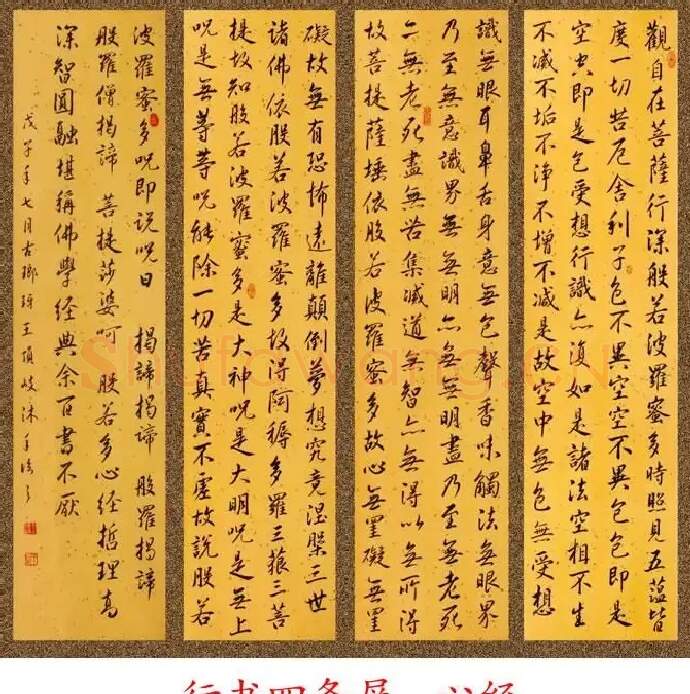 觀自在菩薩行深般若波羅蜜多時照見五蘊皆
度一切苦厄舍利子色不異空空不異色色即是
空空即是色受想行識亦復如是諸法空相不生
不滅不垢不淨不增不減是故空中無色無受想
識無眼耳鼻舌身意無色聲香味觸法無眼界
乃至無意識界無無明亦無無明盡乃至無老死
亦無老死盡無苦集滅道無智亦無得以無所得
故菩提薩埵依般若波羅蜜多故心無罣礙無罣
礙故無有恐怖遠離顛倒夢想究竟涅槃三世
諸佛依般若波羅蜜多故得阿耨多羅三藐三菩
提故知般若波羅蜜多是大神咒是大明咒是無上
咒是無等等咒能除一切苦真實不虛故說般若
波羅蜜多咒即說咒曰 揭諦揭諦 般羅揭諦
般羅僧揭諦 菩提莎婆呵 般若多心經哲理高
深智圓融堪稱佛學經典余百書不厭
戊子年七月古瑯琊王
沐手
Shufawang.CN
行书四条屏 心经